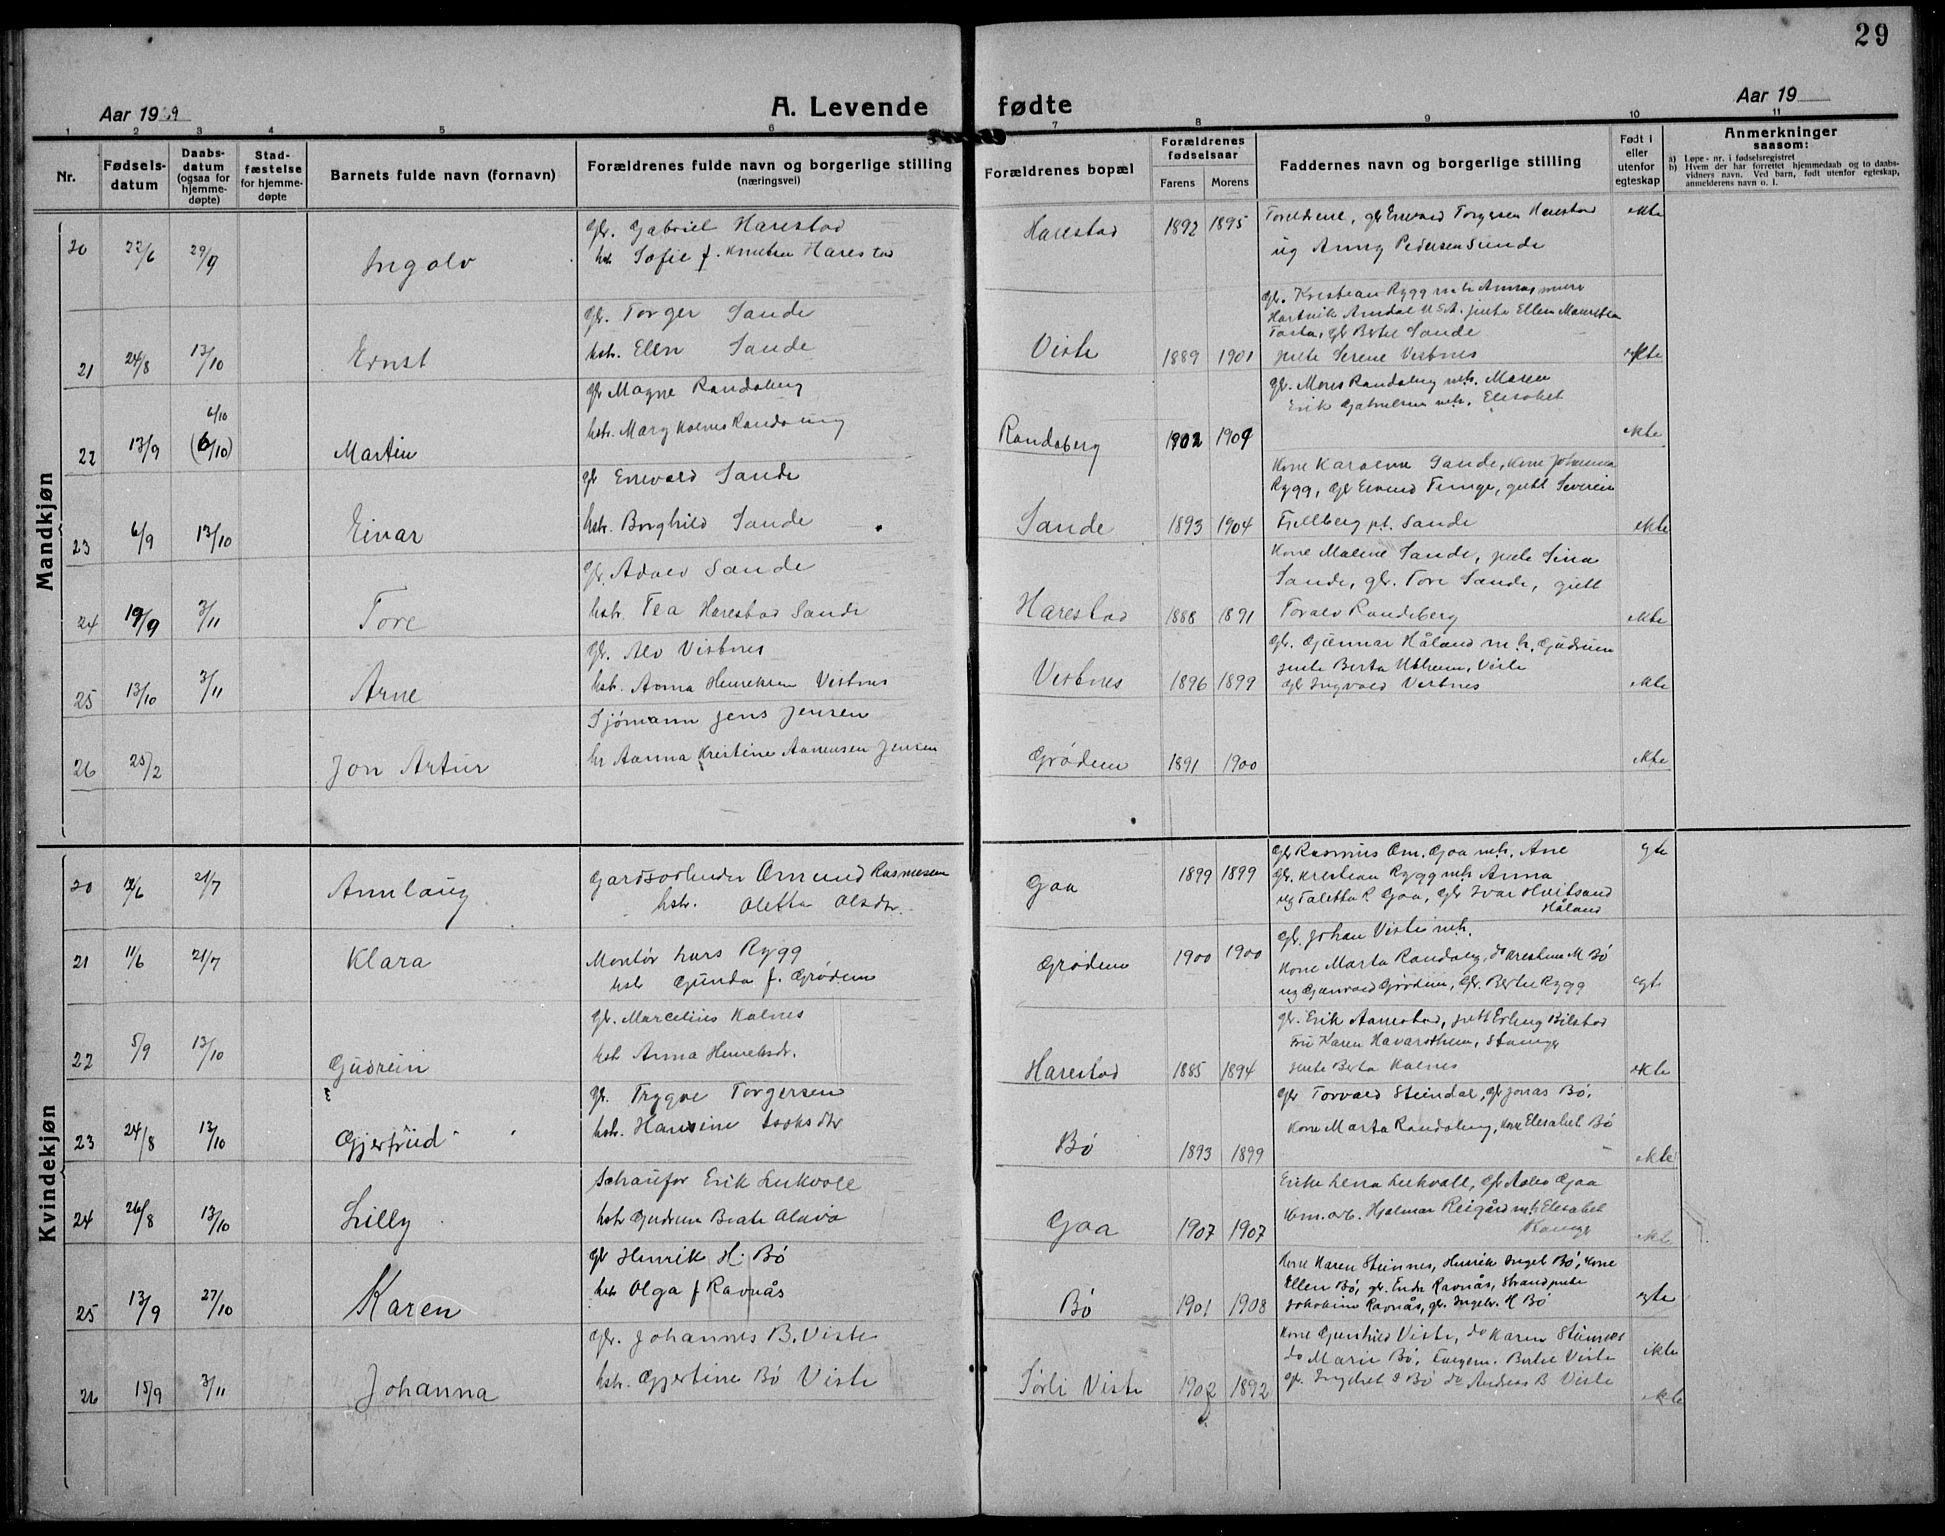 29
Aar 1929
A. Levende fødte
Aar 19
1 2 3 4 5 6 7 8 9 10 11
Nr.
Fødsels-
datum
Daabs-
datum
(ogsaa for
hjemme-
døpte)
Stad-
fæstelse
for hjemme-
døpte
Barnets fulde navn (fornavn)
Forældrenes fulde navn og borgerlige stilling
(næringsvei)
Forældrenes bopæl
Forældrenes
fødselsaar
Farens Morens
Faddernes navn og borgerlige stilling
Født i
eller
utenfor
egteskap
Anmerkninger
saasom:
a) Løpe-nr. i fødselsregistret
b) Hvem der har forrettet hjemmedaab og to daabs-
vidners navn. Ved barn, født utenfor egteskap,
anmelderens navn o. l.
Mandkjøn
20 22/6 29/9 Ingolv
Gbr. Gabriel Harestad
hst. Sofie f. Knutsen Harestad
Harestad 1892 1895
Foreldrene, gbr Enevald Torgersen Harestad
ug Anny Pedersen Sunde
ekte
21 24/8 13/10 Ernst
Gbr. Torger Sande
hstr. Ellen Sande
Viste 1889 1901
Gbr. Kristian Rygg m.h. Anna
Hartvik Amdal U.S.A. jente Ellen
Tasta, gbr Bertel Sande
jente Serene Vistnes
ekte
22 13/9 6/10
(6/10) Martin
Gbr Magne Randaberg
hstr. Mary Kalnes Randaberg
Randaberg 1902 1909
Gbr. Mons Randaberg m.h. Maren
Erik Gabrielsen m.h. Elisabet
ekte
23 6/9 13/10 Einar
Gbr Enevald Sande
hstr. Borghild Sande
Sande 1893 1904
Kone Karoline Sande, Kone Johanna
Rygg, Gbr Eivind Tunge, gutt Severin
Fjellberg pt. Sande
ekte
24 19/9 3/11 Tore
Gbr. Adolv Sande
hstr. Tea Harestad Sande
Harestad 1888 1891
Kone Malene Sande, pike Sina
Sande, gbr. Tore Sande, gutt
Toralv Randeberg
ekte
25 13/10 3/11 Arne
Gbr. Alv Vistnes
hstr. Anna Henriksen Vistnes
Vistnes 1896 1899
Gbr. Gunnar Håland m.h. Gudrun
jente Berta, Viste
Gbr Ingvald Vistnes
ekte
26 25/2 Jon Artur
Sjømann Jens Jensen
hr Aanna Kristine Aanensen Jensen
Grødem 1891 1900
ekte
Kvindekjøn
20 /6 21/7 Annlaug
Gardsarbeider Omund Rasmussen
hstr. Oletta Olsdtr.
Goa 1899 1899
Gbr Rasmus Om. Goa m.h. Ane
Gbr. Kristian Rygg m.h. Anna
ug Taletta R. Goa, Gbr Ivar Hvitsand
Håland
egte
21 11/6 21/7 Klara
Montør Lars Rygg
hstr Gunda f. Grødem
Grødem 1900 1900
Gbr. Johan Viste m.h.
Kone Marta Randaberg, do Kristine M Bø
ug Gunvald Grødem, Gbr. Bertel Rygg
egt.
22 5/9 13/10 Gudrun
Gbr. Marcelius Kalnes
hstr Anna Henriksdr.
Harestad 1885 1894
Gbr. Erik Aanestad, gutt Erling Bilstad
Fru Karen Havarsthein, Stavnger
Jente Berta Kalnes
ekte
23 24/8 13/10 Gjertrud
Gbr. Trygve Torgersen
hstr. Hansine Isaksdtr
Bø 1893 1899
Gbr Torvald Steindal, gbr Jonas Bø,
Kone Marta Randaberg, Kone Elisabet Bø
ekte
24 26/8 13/10 Lilly
Schaufør Erik Lukvoll
hstr Gudrun Beate
Goa 1907 1907
Enke Lena Lukvoll, Gbr Adolv Goa
Kom.arb. Hjalmar m.h. Elisabet
ekte
25 13/9 27/10 Karen
Gbr Henrik H. Bø
hstr Olga f Ravnås
Bø 1901 1908
Kone Karen Stennes, Henrik Ingel Bø, Kone
Ellen Bø, gbr. Endre Ravnås, Strand jente
Jakobine Ravnås, gbr. Ingebr. H Bø
egte
26 15/9 3/11 Johanna
Gbr. Johannes B. Viste
hstr. Gjertine Bø Viste
Sørli Viste 1902 1892
Kone Gunhild Viste, do Karen Stennes
do Marie Bø, Bertel Viste
gbr. Ingebret I Bø do Andreas B Viste
ekte
ekte